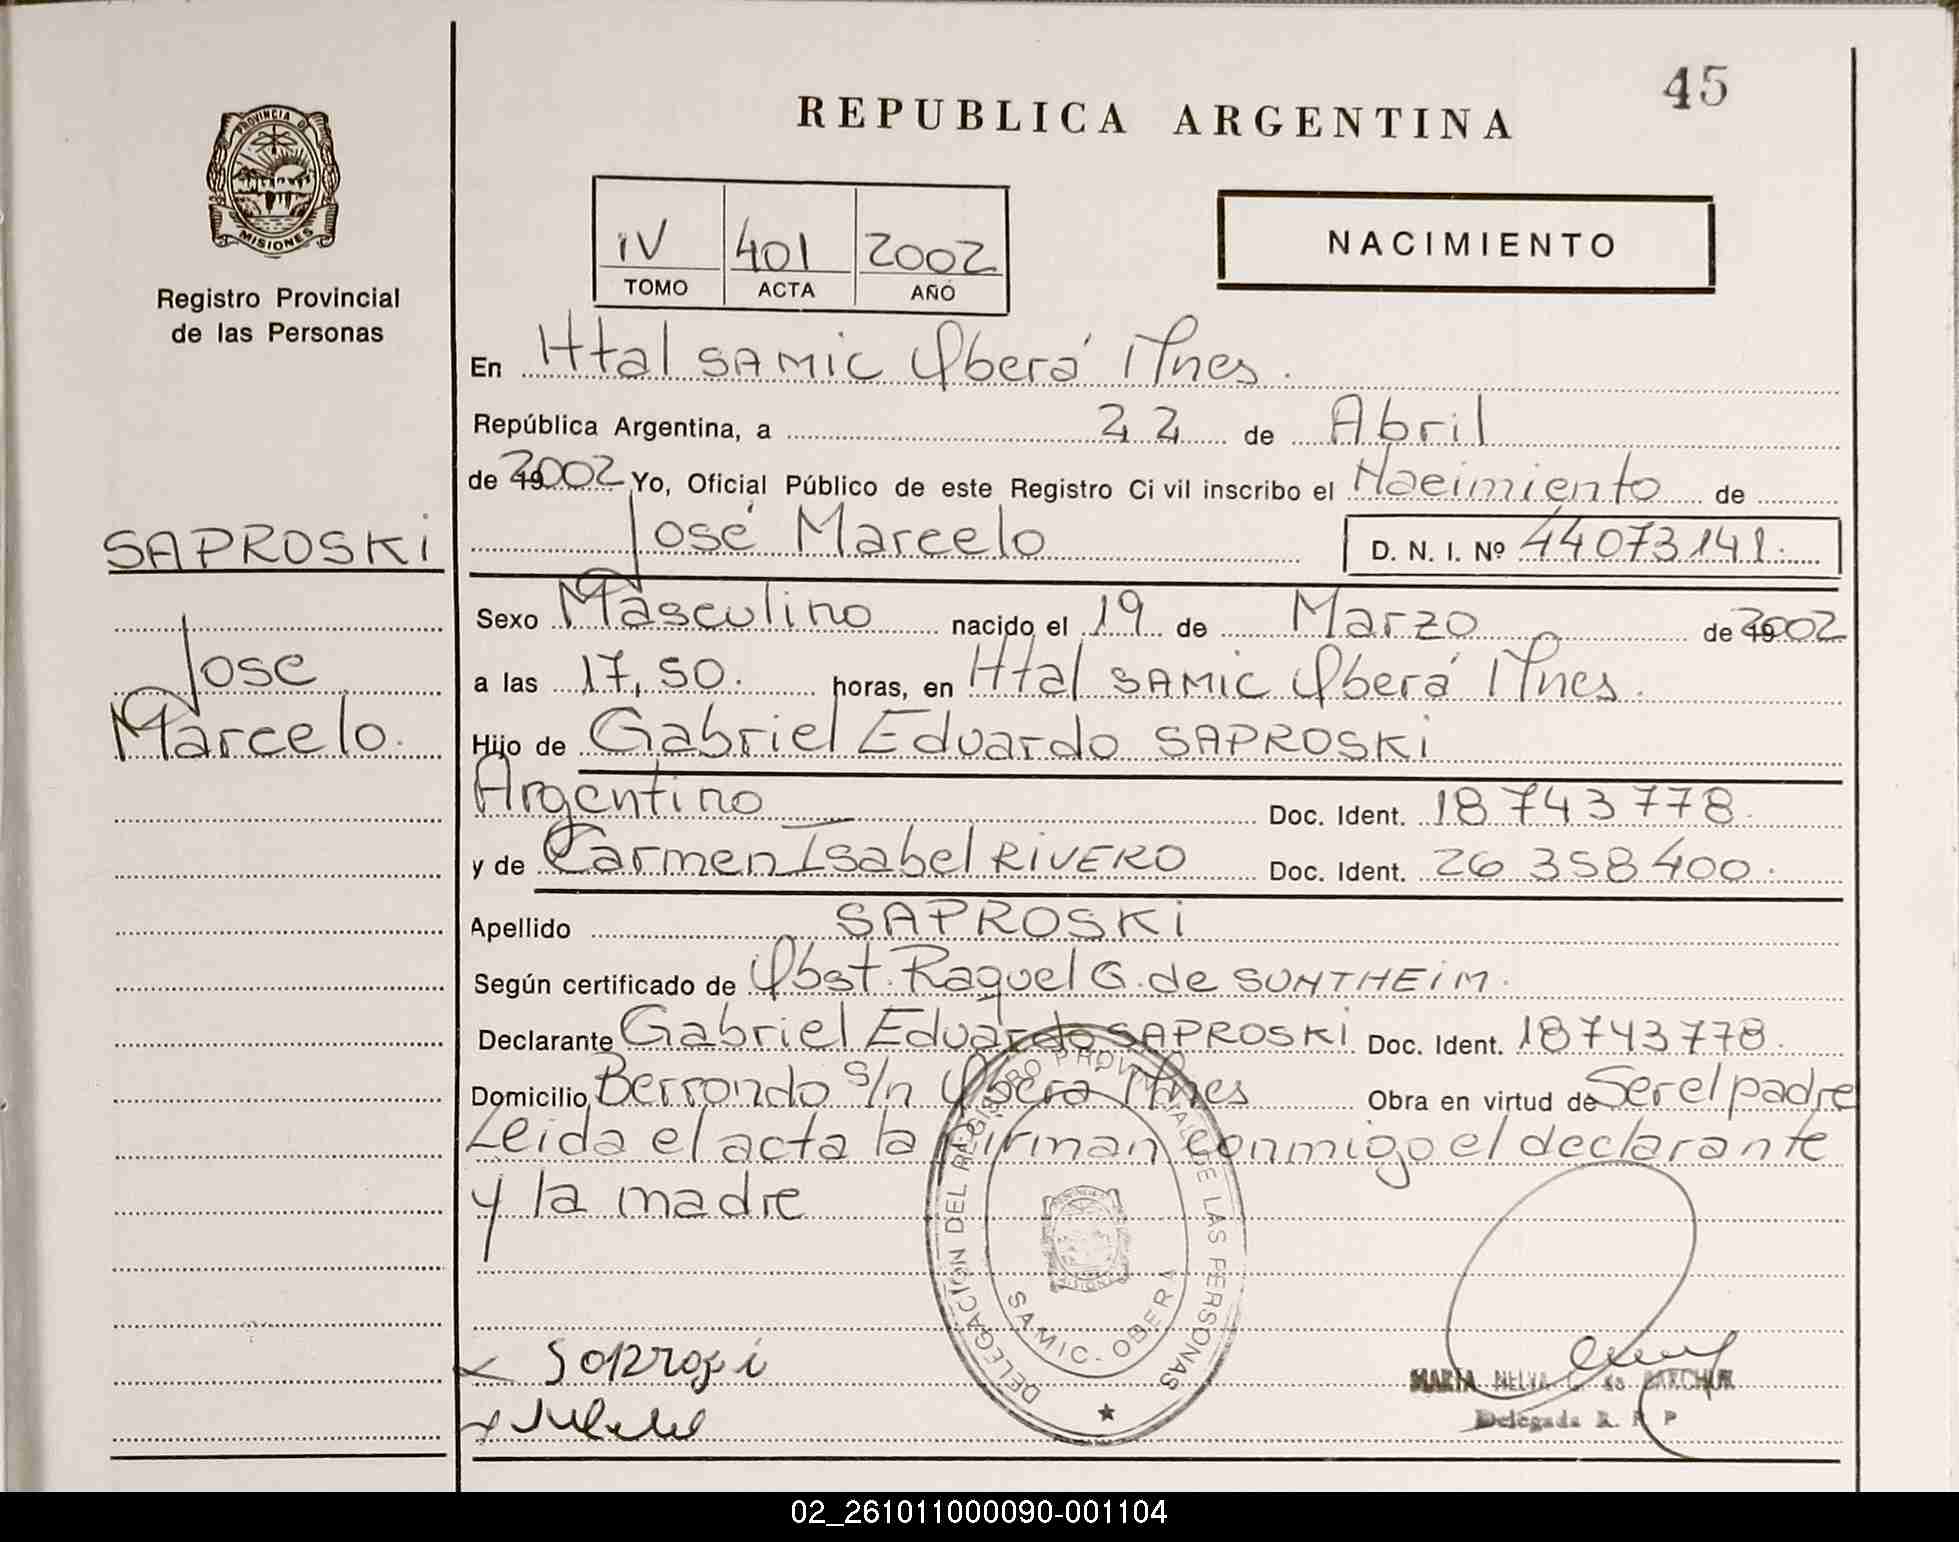 45
REPUBLICA ARGENTINA
PROVINCIA DE
MISIONES
Registro Provincial
de las Personas
IV 401 2002
TOMO ACTA AÑO
NACIMIENTO
En Htal SAMIC Oberá Mnes.
República Argentina, a 22 de Abril
de 2002 Yo, Oficial Público de este Registro Civil inscribo el Nacimiento de
José Marcelo D. N. I. Nº 44073141.
SAPROSKI
Jose
Marcelo.
Sexo Masculino nacido el 19 de Marzo de 2002
a las 17,50. horas, en Htal SAMIC Oberá Mnes.
Hijo de Gabriel Eduardo SAPROSKI
Argentino Doc. Ident. 18743778.
y de Carmen Isabel RIVERO Doc. Ident. 26 358400.
Apellido SAPROSKI
Según certificado de Obst. Raquel G. de SUNTHEIM.
Declarante Gabriel Eduardo SAPROSKI Doc. Ident. 18743778.
Domicilio Berrondo s/n Obera Mnes Obra en virtud de Ser el padre
Leida el acta la firman conmigo el declarante
y la madre
DELEGACIÓN DEL REGISTRO PROVINCIAL DE LAS PERSONAS
SAMIC - OBERA
MARIA NELVA C. de
Delegada R. P. P
02_261011000090-001104